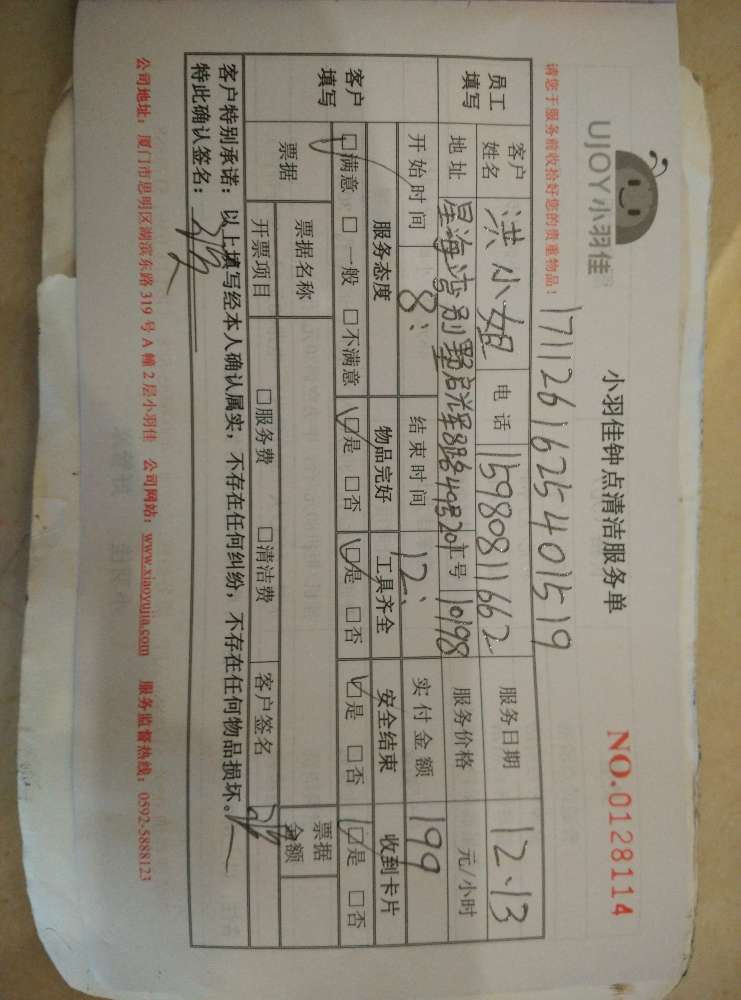 UJOY小羽佳
小羽佳钟点清洁服务单
NO.0128114
请您于服务前收拾好您的贵重物品!
171126162540 1519
员工填写 客户姓名 洪小姐 电话 15980811662 服务日期 12.13
地址 星海湾别墅 工号 10198 服务价格 元/小时
开始时间 8: 结束时间 12: 实付金额 199
客户填写 服务态度 物品完好 工具齐全 安全结束 收到卡片
☑满意 □一般 □不满意 ☑是 □否 ☑是 □否 ☑是 □否 ☑是 □否
票据 票据名称 票据金额
开票项目 □服务费 □清洁费 客户签名
客户特别承诺:以上填写经本人确认属实,不存在任何纠纷,不存在任何物品损坏。
特此确认签名:
公司地址:厦门市思明区湖滨东路319号A幢2层小羽佳 公司网站:www.xiaoyujia.com 服务监督热线:0592-5888123